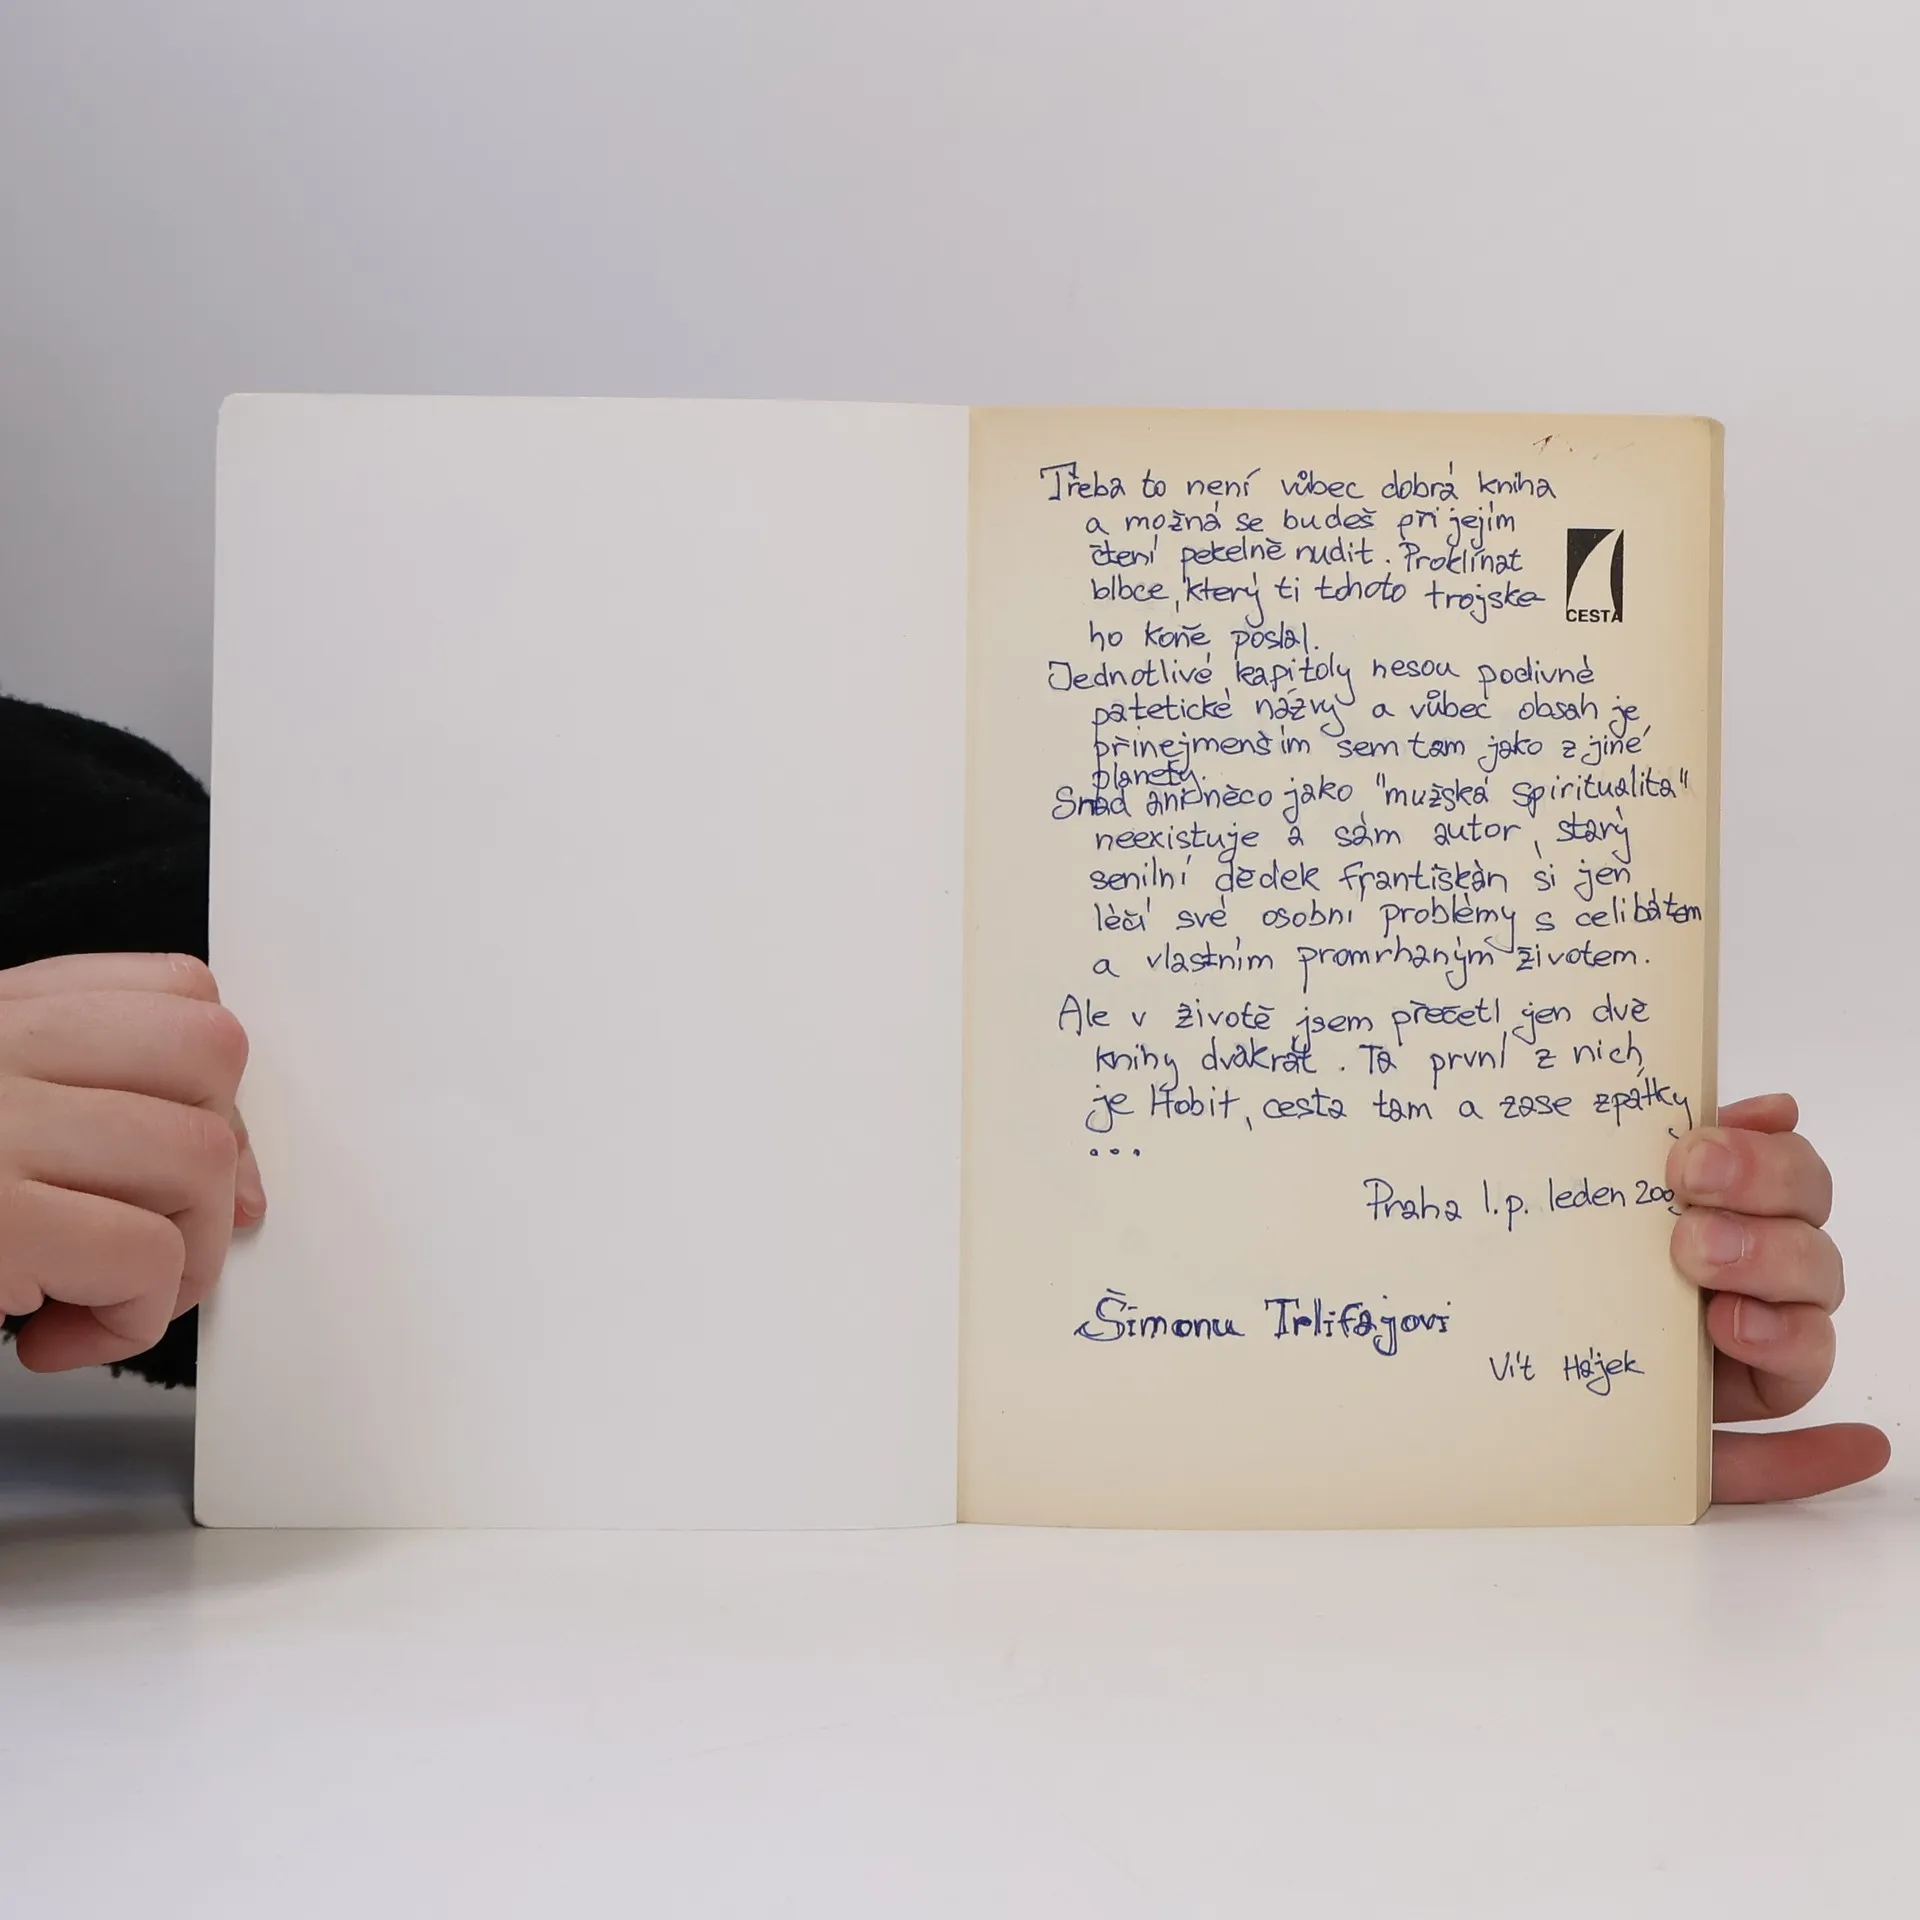 Třeba to není vůbec dobrá kniha
a možná se budeš při jejím
čtení pekelně nudit. Proklínat
blbce, který ti tohoto trojské-
ho koně poslal.
CESTA
Jednotlivé kapitoly nesou podivně
patetické názvy a vůbec obsah je
přinejmenším sem tam jako z jiné
planety.
Snad ani něco jako "mužská spiritualita"
neexistuje a sám autor, starý
senilní dědek františkán si jen
léčí své osobní problémy s celibátem
a vlastním promrhaným životem.
Ale v životě jsem přečetl jen dvě
knihy dvakrát. Ta první z nich
je Hobit, cesta tam a zase zpátky
...
Praha l.p. leden
Šimonu Trlifajovi
Vít Hájek